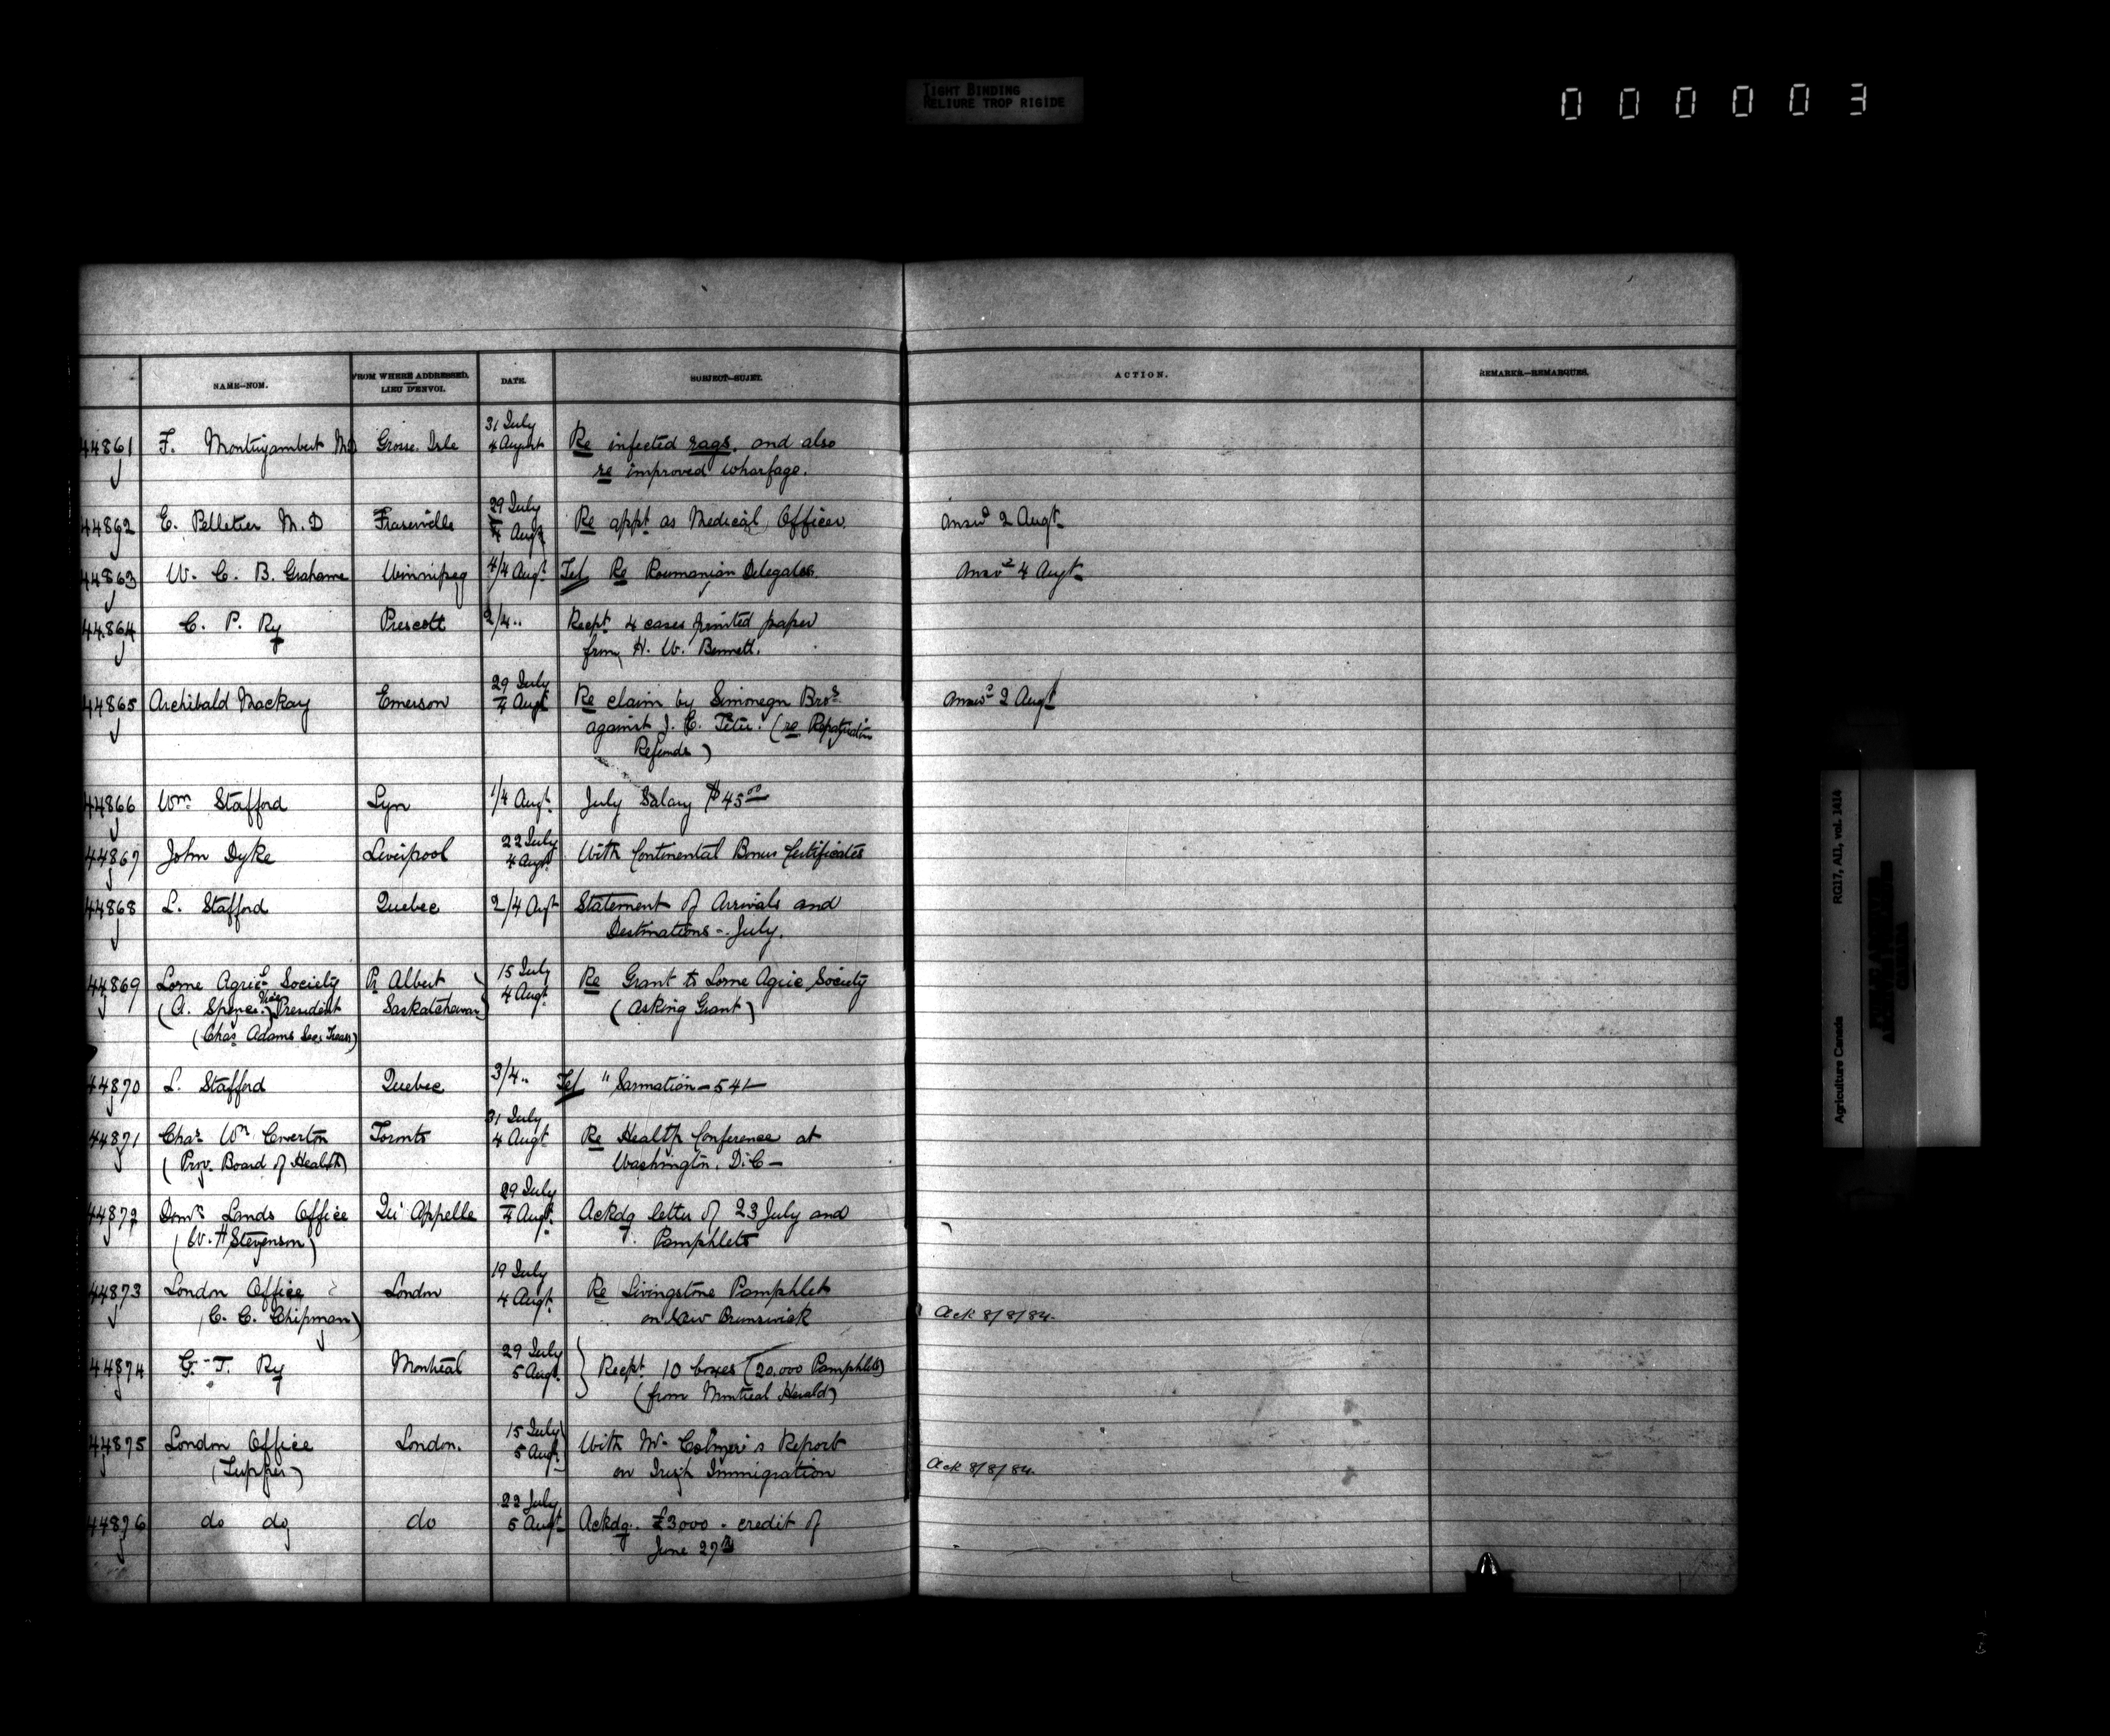 TIGHT BINDING
RELIURE TROP RIGIDE
000003
NAME—NOM.
FROM WHERE ADDRESSED.
LIEU D'ENVOI.
DATE.
SUBJECT—SUJET.
ACTION.
REMARKS—REMARQUES.
44861 F. Montizambert MD Grosse Isle 31 July
4 August Re infected rags, and also
re improved wharfage.
44862 E. Pelletier M.D Fraserville 29 July
4 Augt Re appt as Medical Officer. answd 2 Augt
44863 W. C. B. Grahame Winnipeg 4/4 Augt Tel Re Roumanian Delegates. answd 4 Augt
44864 C. P. Ry Prescott 2/4 " Recpt 4 cases printed paper
from H. W. Bennett.
44865 Archibald Mackay Emerson 29 July
4 Augt Re claim by Bros answd 2 Augt
against J. C. (re
Refunds)
44866 Wm Stafford Lyn 1/4 Augt July Salary $45.00
44867 John Dyke Liverpool 22 July
4 Augt With Continental Bonus Certificates
44868 L. Stafford Quebec 2/4 Augt Statement of Arrivals and
Destinations - July.
44869 Lorne Agricl Society Pr Albert 15 July Re Grant to Lorne Agric Society
(A. Spence Vice President Saskatchewan 4 Augt (Asking Grant)
(Chas Adams Sec. Treas)
44870 L. Stafford Quebec 3/4 " Tel "Sarmatian - 541 -
44871 Chas Wm Coverton Toronto 31 July
4 Augt Re Health Conference at
(Prov. Board of Health) Washington. D.C -
44872 Domn Lands Office Qu'Appelle 29 July
4 Augt Ackdg letter of 23 July and
(W. H Stevenson) Pamphlets
44873 London Office London 19 July
4 Augt Re Livingstone Pamphlet
(C. C. Chipman) on New Brunswick Ack 8/8/84.
44874 G. T. Ry Montreal 29 July
5 Augt Recpt 10 boxes (20,000 Pamphlets)
(from Montreal Herald)
44875 London Office London. 15 July
5 Augt With Mr Colmer's Report
(Tupper) on Irish Immigration Ack 8/8/84.
44876 do do do 22 July
5 Augt Ackdg. £3000 - credit of
June 27th
RG17, AII, vol. 1414
Agriculture Canada